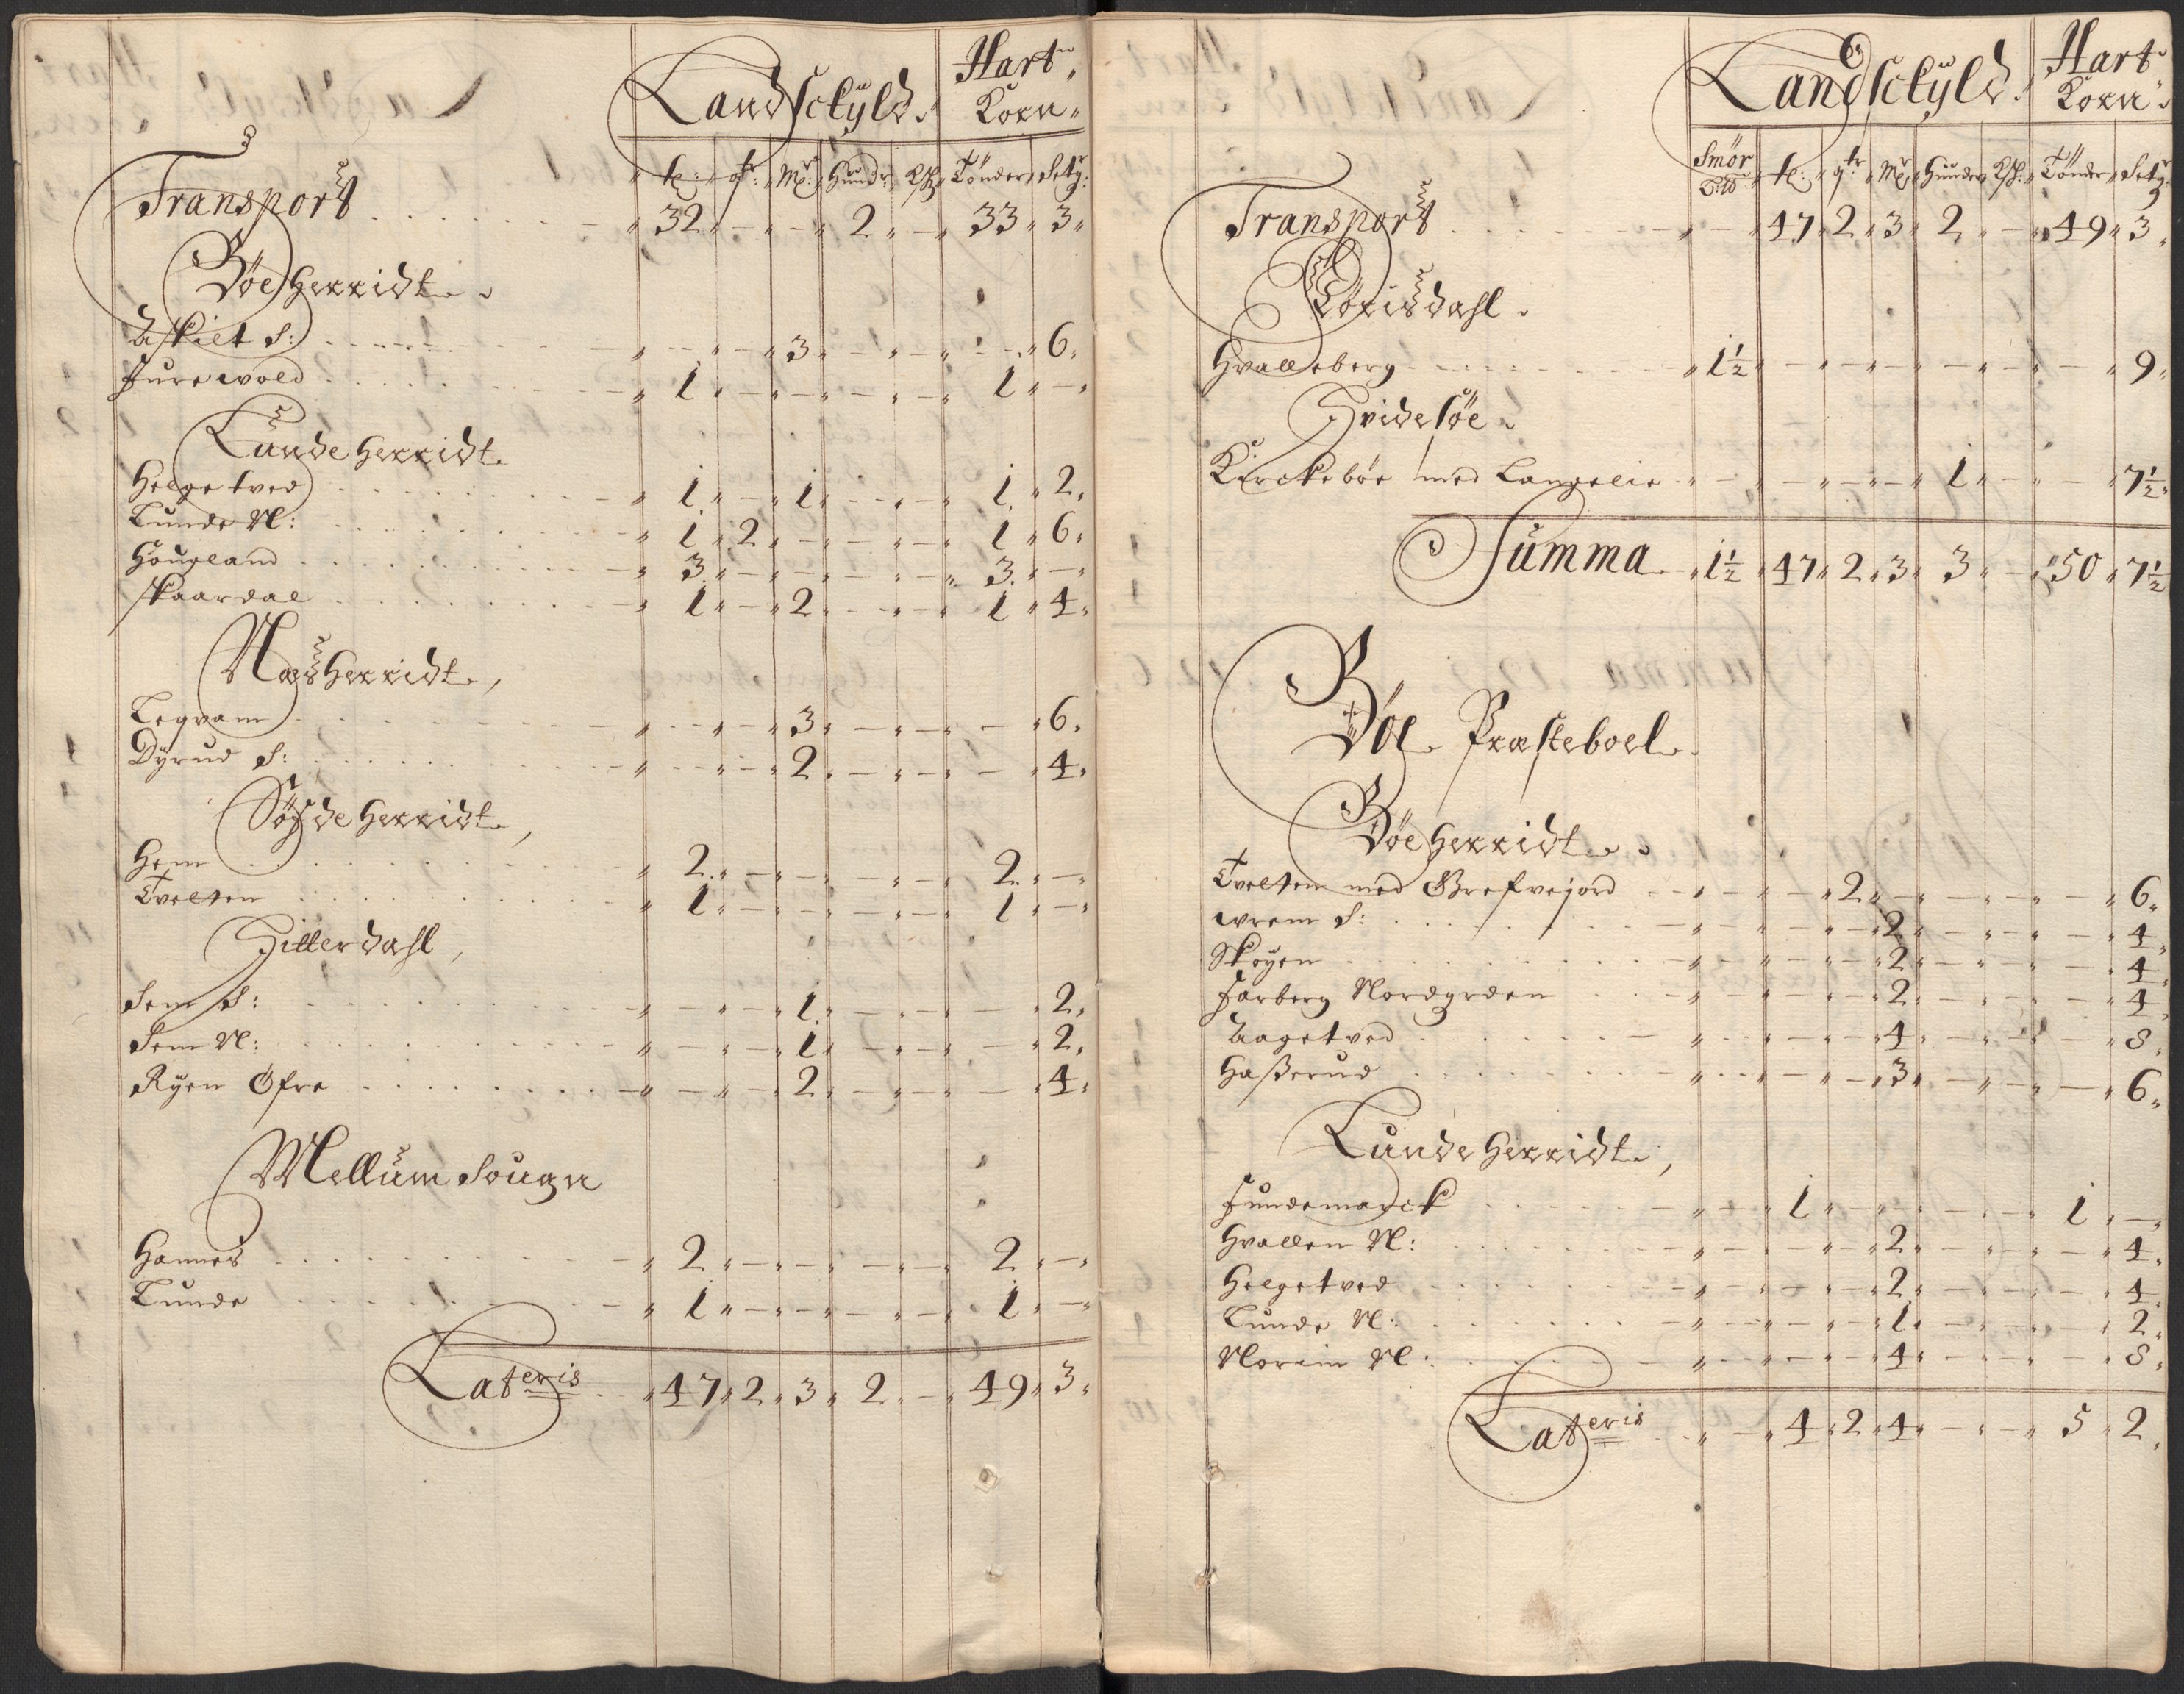 Landschyld. Hart Korn
tl: qtr: Mk: Hundr: Ksk: Tönder Setg:
Transport 32 - - 2 - 33 3
Böe Herridt
Askilt S: - - 3 - - - 6
Furuwold 1 - - - - 1 -
Lunde Herridt
Helgetved 1 - 1 - - 1 2
Lunde N: 1 2 - - - 1 6
Hougland 3 - - - - 3 -
Skaardal 1 - 2 - - 1 4
Næs Herridt
Legvam - - 3 - - - 6
Dyrud S: - - 2 - - - 4
Söfde Herridt
Hem 2 - - - - 2 -
Tvelten 1 - - - - 1 -
Hitterdahl
Sem S: - - 1 - - - 2
Sem N: - - 1 - - - 2
Ryen Öfre - - 2 - - - 4
Mellum Sougn
Hannes 2 - - - - 2 -
Lunde 1 - - - - 1 -
Lateris 47 2 3 2 - 49 3
Landschyld. Hart Korn
Smör tl: qtr Mk Hunder Ksk: Tönder Setg:
Transport - 47 2 3 2 - 49 3
Lörisdahl
Hvalleberg 1½ - - - - - - 9
Hvidesöe
Kirckeböe med Langelie - - - - 1 - - 7½
Summa 1½ 47 2 3 3 - 50 7½
Böe Præsteboel
Böe Herridt
Tvelten med Grefvejord - - 2 - - - - 6
wrem S: - - - 2 - - - 4
Skoyen - - - 2 - - - 4
Farberg Nordgrden - - - 2 - - - 4
Aagetved - - - 4 - - - 8
Haßerud - - - 3 - - - 6
Lunde Herridt
Fundemarck - 1 - - - - 1 -
Hvallen N: - - - 2 - - - 4
Helgetved - - - 2 - - - 4
Lunde N: - - - 1 - - - 2
Norein N: - - - 4 - - - 8
Lateris - 4 2 4 - - 5 2